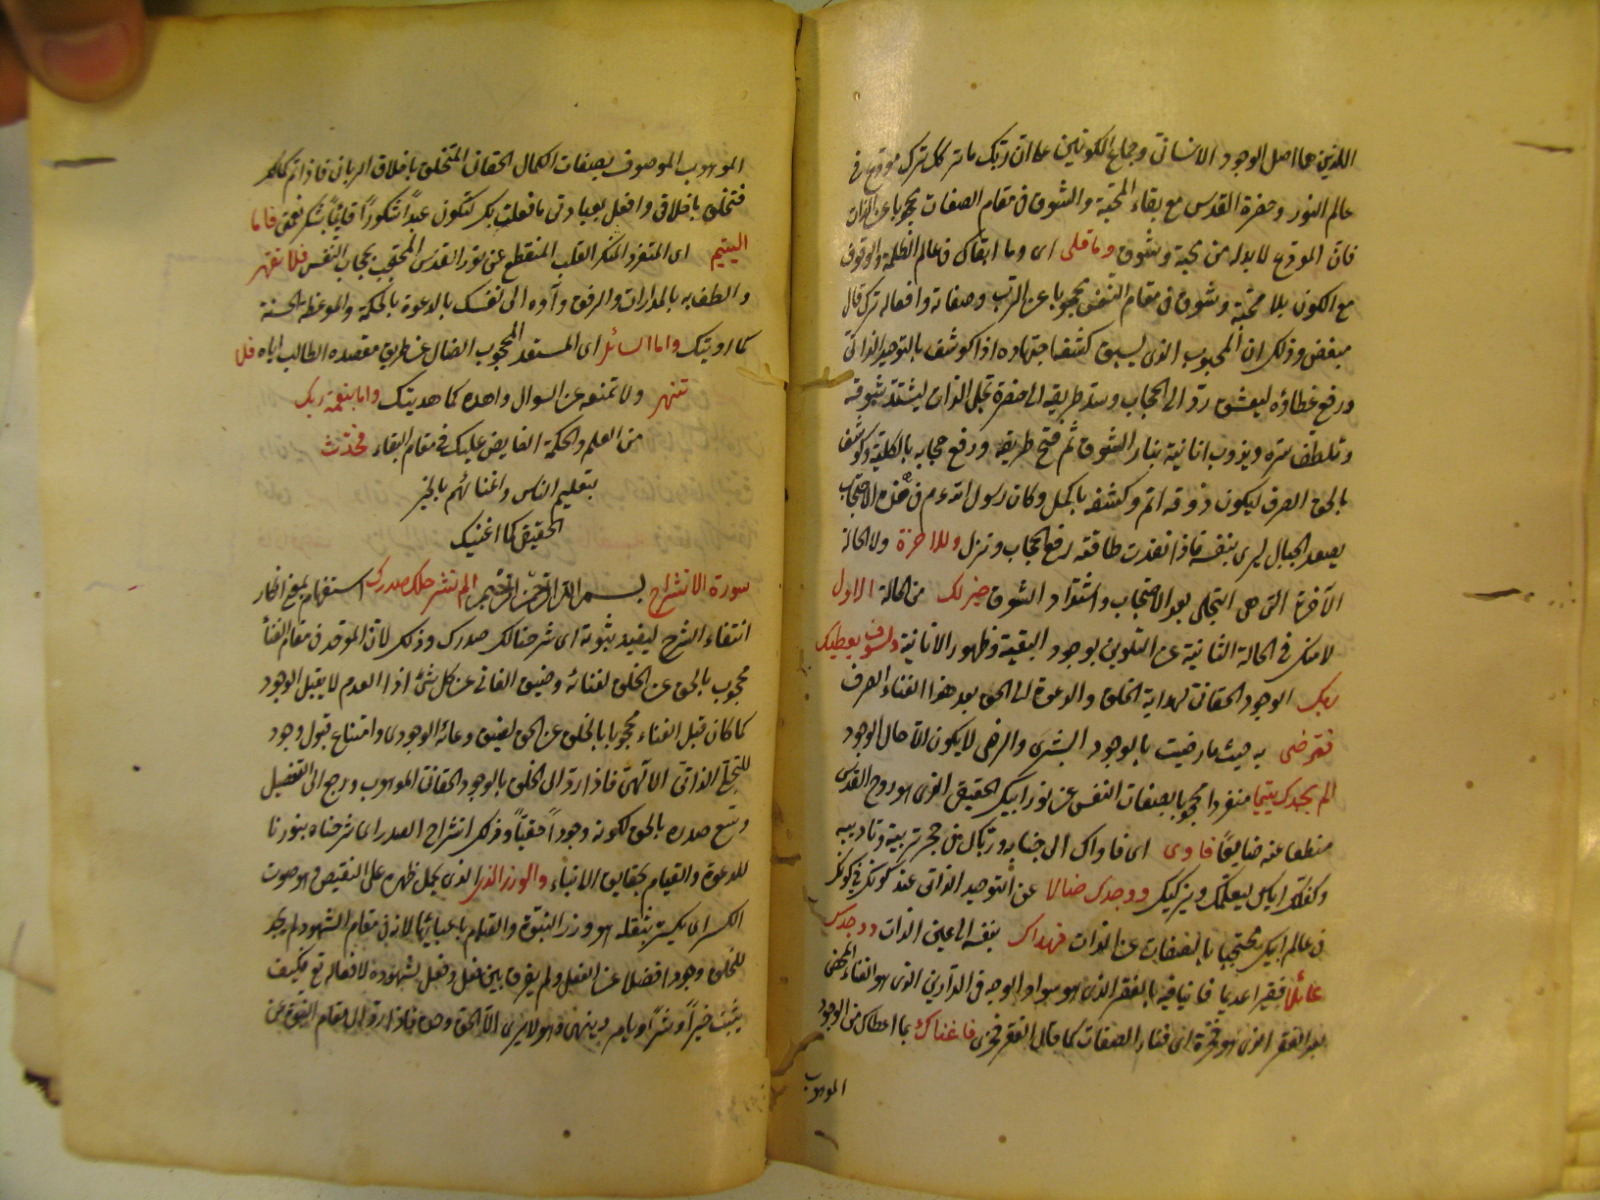 اللذين هما اصل الوجود الانسانى وجماع الكونين على ان ربك ما تركك ترك مودع فى
عالم النور وحضرة القدس مع بقاء المحبة والشوق فى مقام الصفات محجوبا عن الذات
فان المودع لا بد له من محبة وشوق وما قلى اى وما ابقاك فى عالم الظلمة والوقوف
مع الكون بلا محبة وشوق فى مقام النفس محجوبا عن الرب وصفاته وافعاله ترك قال
مبغض وذلك ان المحبوب الذى يسبق كشفه اجتهاده اذا كوشف بالتوحيد الذاتى
ورفع غطاؤه ليعشق رد الى الحجاب وسد طريقه الى حضرة تجلى الذات ليشتد شوقه
وتلطف سره ويذوب انانية بنار الشوق ثم فتح طريقه ورفع حجابه بالكلية وكوشف
بالحق الصرف ليكون ذوقه اتم وكشفه اكمل وكان رسول الله عم فى هذه الاحتجاب
يصعد الجبال ليرى بنفسه فاذا نفدت طاقته رفع الحجاب ونزل وللاخرة ولا الحالة
الآخرة التى هى التجلى بعد الاحتجاب واشتداد الشوق خير لك من الحالة الاولى
لامنك فى الحالة الثانية عن التلوين بوجود البقية وظهور الانانية ولسوف يعطيك
ربك الوجود الحقانى لهداية الخلق والدعوة الى الحق بعد هذا الفناء الصرف
فترضى به حيث ما رضيت بالوجود البشرى والرضى لا يكون الا حال الوجود
الم يجدك يتيما منفردا محجوبا بصفات النفس عن نور ابيك الحقيقى الذى هو روح القدس
منقطعا عنه ضايعا فاوى اى فاواك الى جنابه ورباك من حجر تربيته وتاديبه
وكفلك اياك ليعلمك ويزكيك ووجدك ضالا عن التوحيد الذاتى عند كونك
فى عالم ابيك محتجبا بالصفات عن الذات فهداك بنفسه الى عين الذات ووجدك
عائلا فقيرا عديما فانيا فيه بالفقر الذى هو سواد الوجه فى الدارين الذى هو الفناء المحض
بعد الفقر الذى هو فخره اى فناء الصفات كما قال الفقر فخرى فاغناك بما اعطاك من الوجود
الموهوب
الموهوب الموصوف بصفات الكمال الحقانى المتخلق باخلاق الربانى فاذا تم كمالك
فتخلق باخلاقى وافعل بعبادى ما فعلت بك لتكون عبدا شكورا قائما بشكر نعمتى فاما
اليتيم اى المنفرد المنكر القلب المنقطع عن نور القدس المحتجب بحجاب النفس فلا تقهر
والطف به بالمدارات والرفق وآوه الى نفسك بالدعوة بالحكمة والموعظة الحسنة
كما رويتك واما السائل اى المستعد المحجوب الضال عن طريق مقصده الطالب اياه فلا
تنهر ولا تمنعه عن السوال واهده كما هديتك واما بنعمة ربك
من العلم والحكمة الفايض عليك فى مقام البقاء فحدث
بتعليم الناس واغنائهم بالخير
الحقيقى كما اغنيتك
سورة الانشراح بسم الله الرحمن الرحيم الم نشرح لك صدرك استفهام بمعنى انكار
انتفاء الشرح ليفيد ثبوته اى شرحنا لك صدرك وذلك لان الموحد فى مقام الفناء
محجوب بالحق عن الخلق لفنائه وضيق الفانى عن كل شئ اذا العدم لا يقبل الوجود
كما كان قبل الفناء محجوبا بالخلق عن الحق لضيق وعائه الوجودى وامتناع قبول وجود
للتجلى الذاتى الالهى فاذا رد الى الخلق بالوجود الحقانى الموهوب ورجع الى التفصيل
وسع صدره بالحق لكونه وجودا حقيا وذلك انشراح الصدر اى شرحناه بنورنا
للدعوة والقيام بحقايق الانباء والوزر الذى الذى يحمل ظهره على النقيض وهو صوت
الكسر اى يكسره بثقله هو وزر النبوة والقيام باعبائها لانه فى مقام الشهود لم يجد
للخلق وجودا فضلا عن الفعل ولم يفرق بين فعل وفعل لشهوده لافعاله تع فكيف
يثبت خيرا وشرا ويامر وينهى وهو لا يرى الا الحق وحده فاذا رد الى مقام النبوة عن